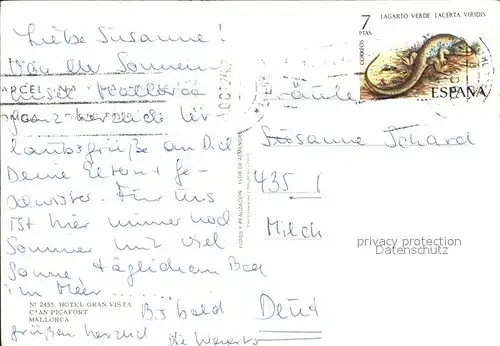 Liebe Susanne!
Von der Sonnen-
insel Mallorca
ganz herzliche Ur-
laubsgrüße an Dich
Deine Eltern + Ge-
schwister. Für uns
ist hier immer noch
Sommer mit viel
Sonne, täglichem Bad
im Meer...
Bis bald
grüßen herzlich die
Nº 2435 HOTEL GRAN VISTA
C'AN PICAFORT
MALLORCA
FOTOS Y REALIZACION
7
PTAS
LAGARTO VERDE. LACERTA VIRIDIS
CORREOS
ESPAÑA
Fräulein
Susanne Schard
435 1
Milch
Deut
privacy protection
Datenschutz